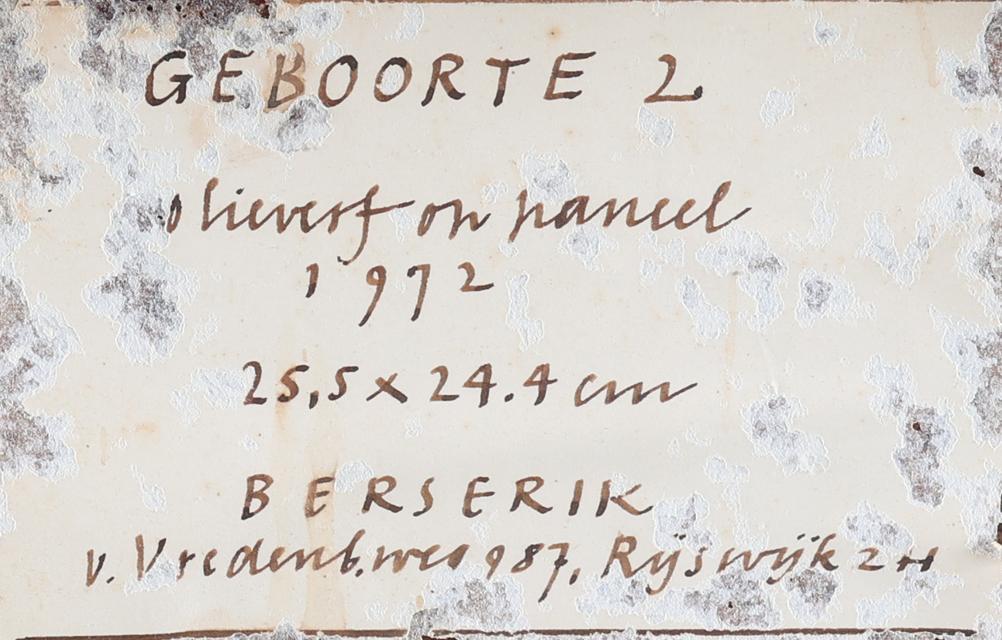 GEBOORTE 2
olieverf op paneel
1972
25,5 x 24.4 cm
BERSERIK
v. Vredenb.weg 987, Rijswijk ZH